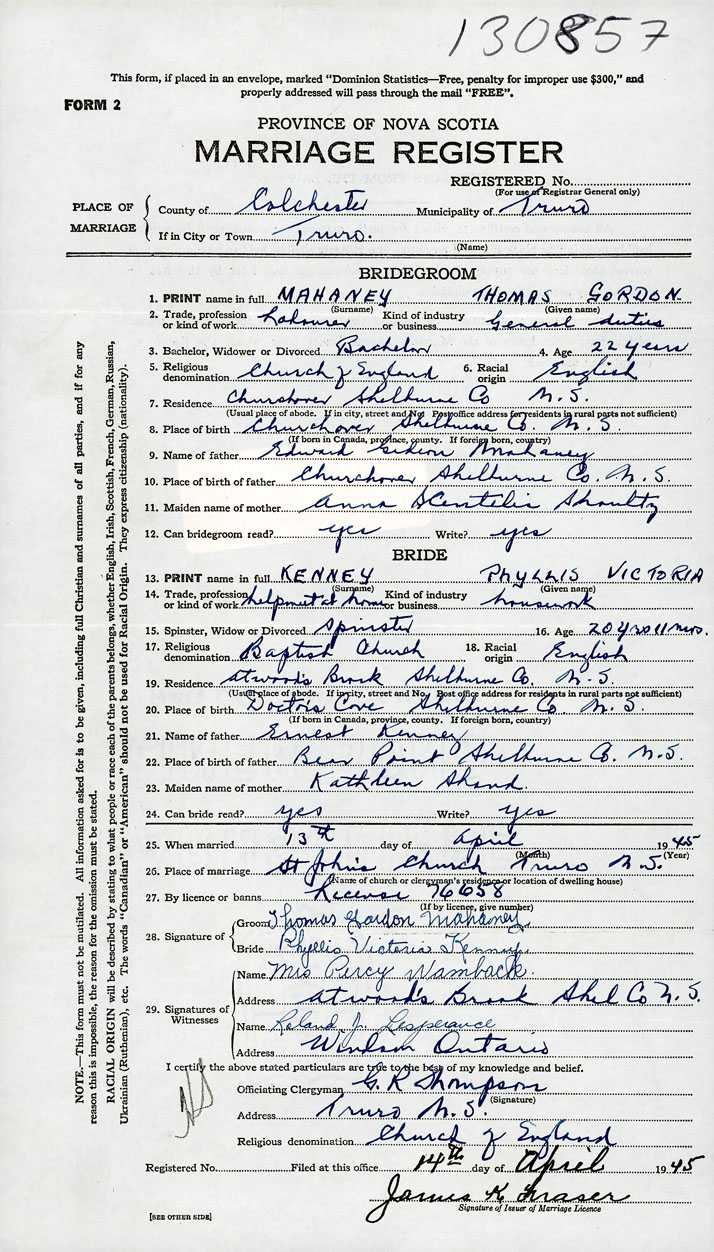 130857
This form, if placed in an envelope, marked "Dominion Statistics—Free, penalty for improper use $300," and
properly addressed will pass through the mail "FREE".
FORM 2
PROVINCE OF NOVA SCOTIA
MARRIAGE REGISTER
REGISTERED No.
(For use of Registrar General only)
PLACE OF MARRIAGE
County of Colchester Municipality of Truro
If in City or Town Truro.
(Name)
BRIDEGROOM
1. PRINT name in full MAHANEY THOMAS GORDON
(Surname) (Given name)
2. Trade, profession or kind of work labourer Kind of industry or business General duties
3. Bachelor, Widower or Divorced Bachelor 4. Age 22 years
5. Religious denomination Church of England 6. Racial origin English
7. Residence Churchover Shelburne Co N.S.
(Usual place of abode. If in city, street and No. Post office address for residents in rural parts not sufficient)
8. Place of birth Churchover Shelburne Co. N.S.
(If born in Canada, province, county. If foreign born, country)
9. Name of father Edward Gideon Mahaney
10. Place of birth of father Churchover Shelburne Co. N.S.
11. Maiden name of mother Anna Shoultz
12. Can bridegroom read? yes Write? yes
BRIDE
13. PRINT name in full KENNEY PHYLLIS VICTORIA
(Surname) (Given name)
14. Trade, profession or kind of work helpmet at home Kind of industry or business housework
15. Spinster, Widow or Divorced Spinster 16. Age 20 yrs 11 mos.
17. Religious denomination Baptist Church 18. Racial origin English
19. Residence Atwood's Brook Shelburne Co. N.S.
(Usual place of abode. If in city, street and No. Post office address for residents in rural parts not sufficient)
20. Place of birth Doctors Cove Shelburne Co N.S.
(If born in Canada, province, county. If foreign born, country)
21. Name of father Ernest Kenney
22. Place of birth of father Bear Point Shelburne Co. N.S.
23. Maiden name of mother Kathleen Shand
24. Can bride read? yes Write? yes
25. When married 13th day of April 1945
(Month) (Year)
26. Place of marriage St John's Church Truro N.S.
(Name of church or clergyman's residence or location of dwelling house)
27. By licence or banns License 76658
(If by licence, give number)
28. Signature of
Groom Thomas Gordon Mahaney
Bride Phyllis Victoria Kenney
29. Signatures of Witnesses
Name Mrs Percy Wamback.
Address Atwood's Brook Shel Co N.S.
Name Roland J. Lesperance
Address Windsor Ontario
I certify the above stated particulars are true to the best of my knowledge and belief.
Officiating Clergyman G. R Thompson
(Signature)
Address Truro N.S.
Religious denomination Church of England
Registered No. Filed at this office 14th day of April 1945
James K Fraser
Signature of Issuer of Marriage Licence
[SEE OTHER SIDE]
NOTE.—This form must not be mutilated. All information asked for is to be given, including full Christian and surnames of all parties, and if for any
reason this is impossible, the reason for the omission must be stated.
RACIAL ORIGIN will be described by stating to what people or race each of the parents belongs, whether English, Irish, Scottish, French, German, Russian,
Ukrainian (Ruthenian), etc. The words "Canadian" or "American" should not be used for Racial Origin. They express citizenship (nationality).